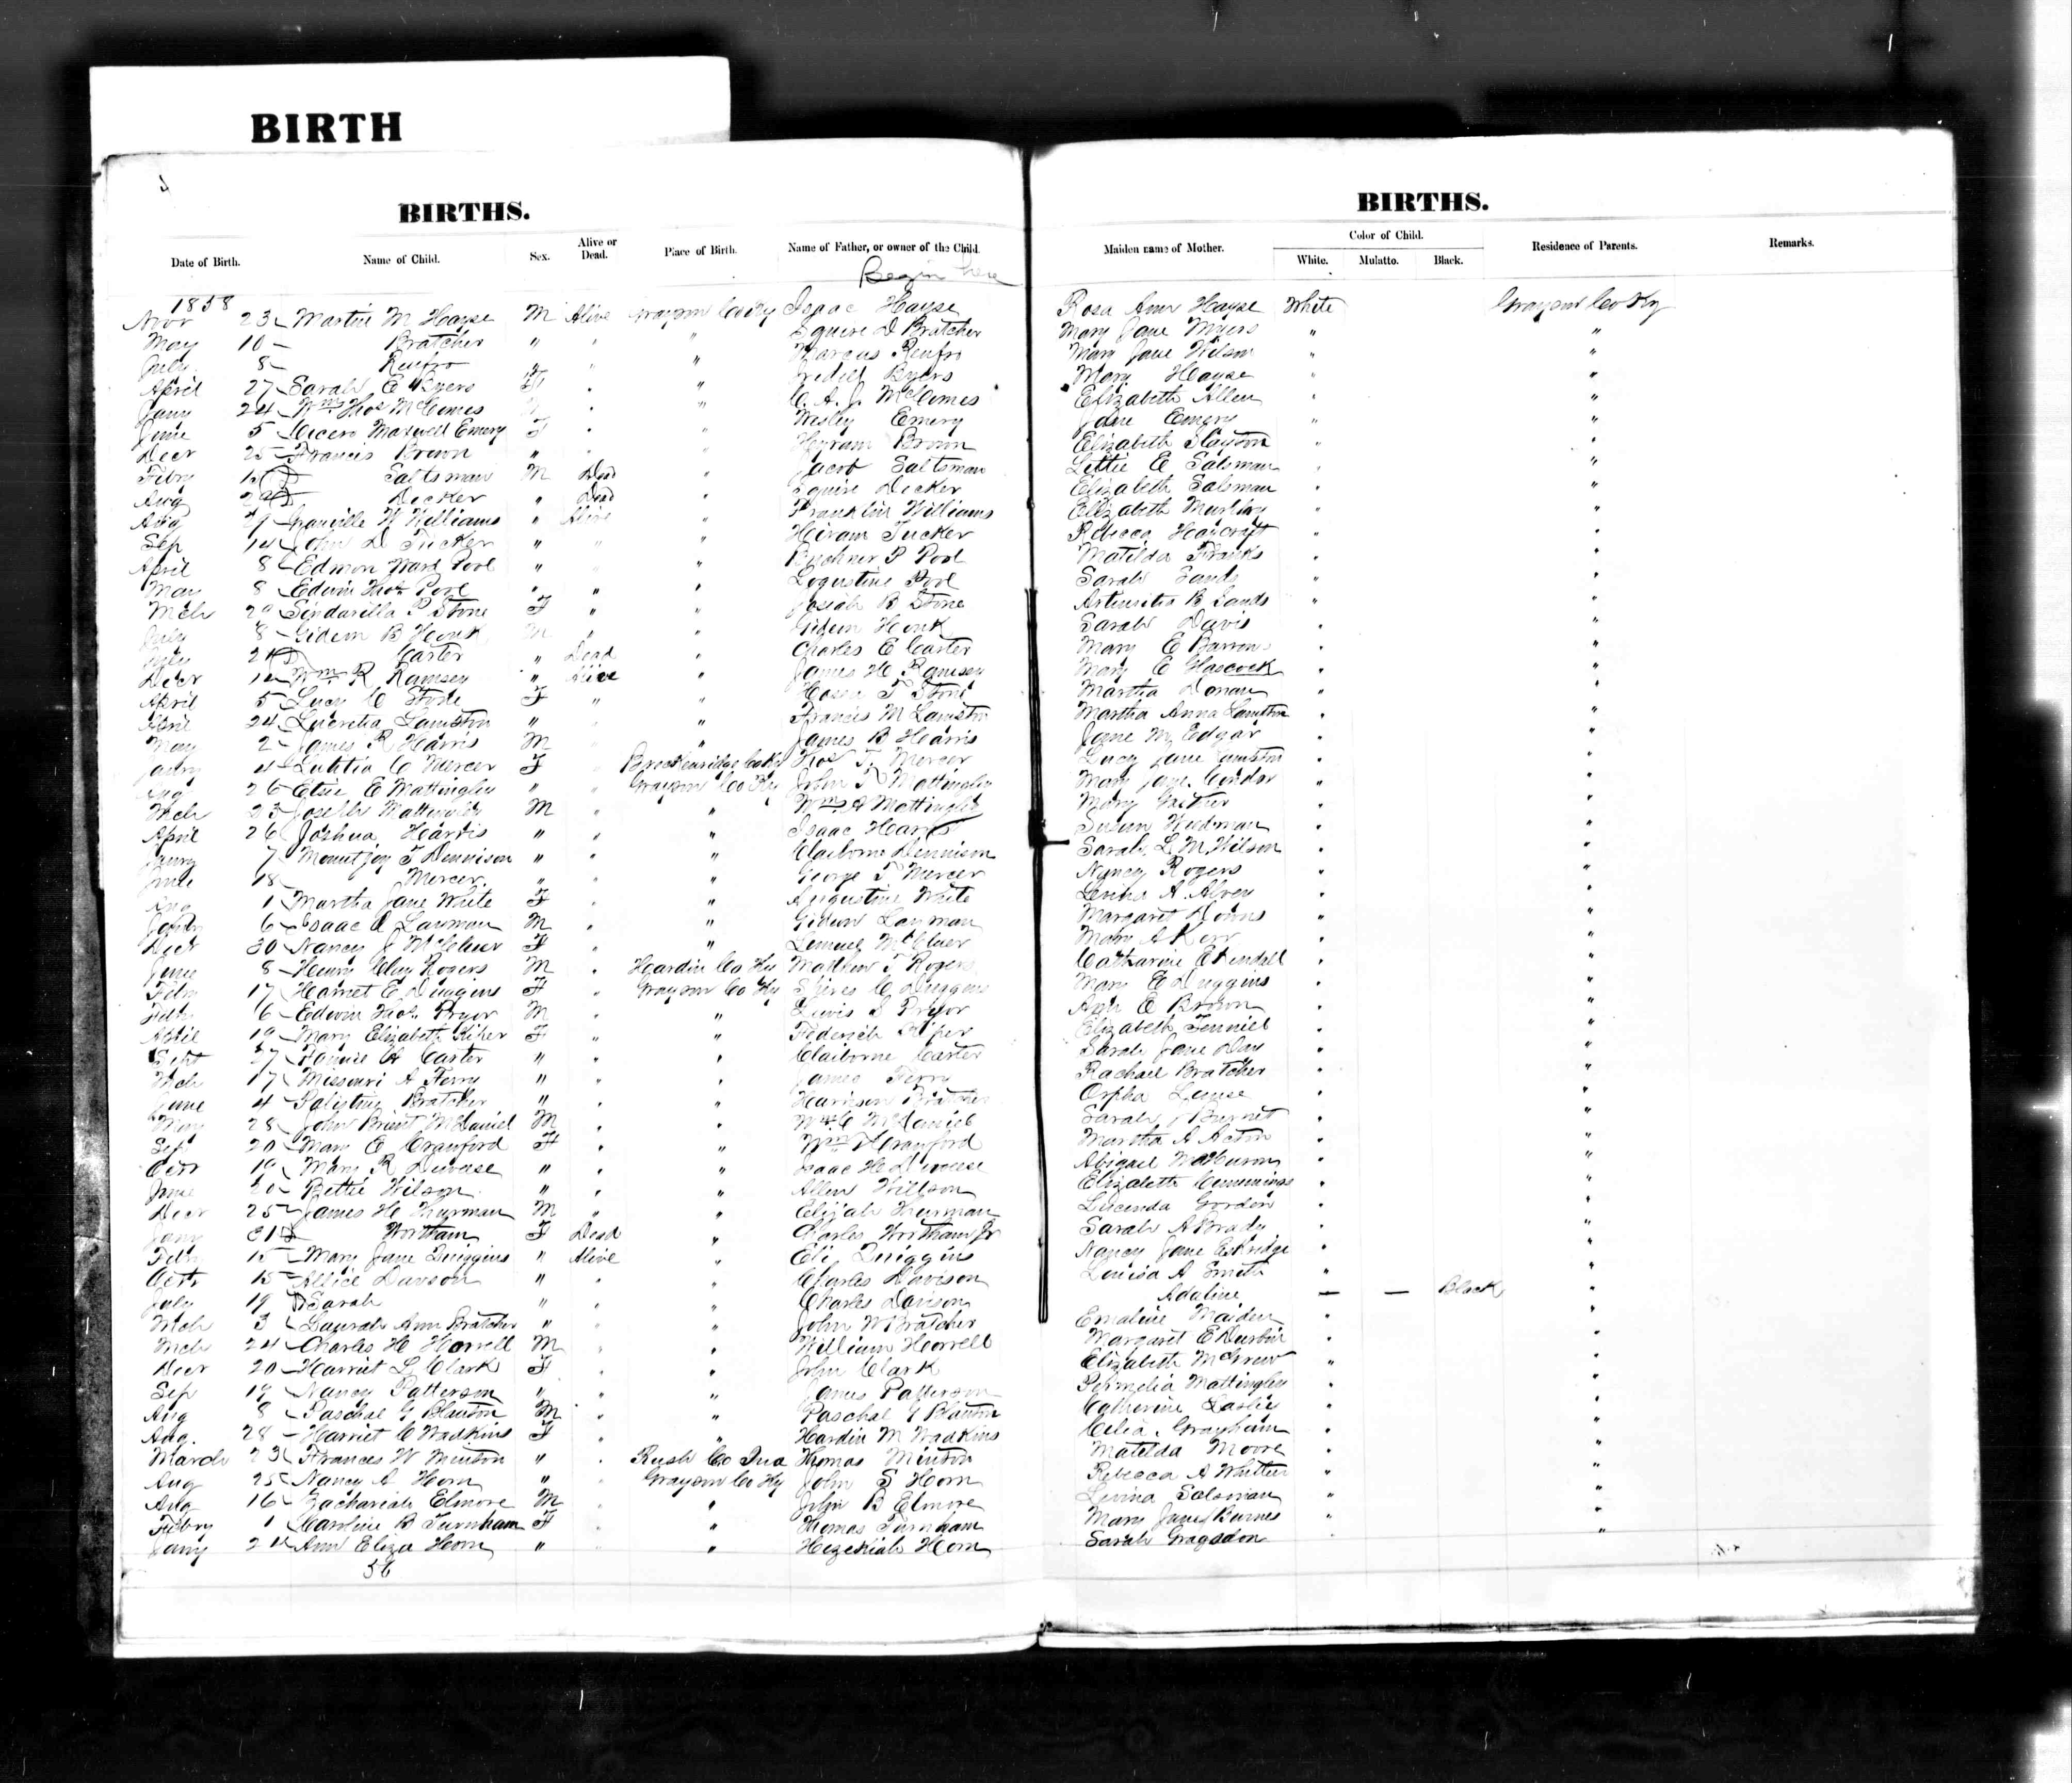 BIRTH
4
BIRTHS.
Date of Birth. Name of Child. Sex. Alive or Dead. Place of Birth. Name of Father, or owner of the Child.
Begin here
1858
Novr 23 Martin M Hayse M Alive Grayson Co Ky Isaac Hayse
May 10 Bratcher " " " Squire D Bratcher
July 8 Renfro " " " Marcus Renfro
April 27 Sarah E Byers F " " Byers
Jany 24 Wm Thos McComes " " C. A. J. McComes
June 5 Cicero Maxwell Emery F " " Wesley Emery
Decr 25 Francis Brown " " " Hyram Brown
Feby Saltsman M Dead " Jacob Saltsman
Aug Decker " Dead " Squire Decker
Aug 29 Granville W Williams " Alive " Franklin Williams
Sep 14 John D Tucker " " " Hiram Tucker
April 8 Edmon Ward Pool " " " P Pool
May 8 Edwin Thos Pool " " " Logustine Pool
Mch 29 Sindarilla P Stone F " " Josiah B Stone
July 8 Gideon B Honk M " " Gideon Honk
July Carter " Dead " Charles E Carter
Decr Wm R Ramsey " Alive " James H Ramsey
April 5 Lucy C Stone F " " T Stone
April 24 Lucretia Lamston " " " Francis M Lamston
May 2 James R Harris M " " James B Harris
4 Lutitia C Mercer F " Breckenridge Co Ky Thos T. Mercer
Aug 26 E Mattingley " " Grayson Co Ky John T Mattingley
Mch 23 Joseph Mattingly M " " Wm A Mattingly
April 26 Joshua Harris " " " Isaac Harris
Jany 7 Mountjoy T Dennison " " " Claiborne Dennison
June 18 Mercer " " " George T Mercer
Aug 1 Martha Jane White F " " Augustine White
6 Isaac D Layman M " " Gideon Layman
Decr 30 Nancy J McCluer F " " Lemuel McCluer
June 8 Henry Clay Rogers M " Hardin Co Ky Mathew T Rogers
Feby 17 Harriet E Duggins F " Grayson Co Ky Spires C Duggins
Feby 6 Edwin Thos. Pryor M " " Lewis S Pryor
April 19 Mary Elizabeth Kiper F " " Federick Kiper
Sept 27 Fannie A Carter " " " Claiborne Carter
Mch 17 Missouri A Ferry " " " James Ferry
June 4 Palistine Bratcher " " " Harrison Bratcher
May 28 John Brient McDaniel M " " Wm C McDaniel
Sep 20 Mary E Crawford F " " Wm Crawford
19 Mary R Dewease " " " Isaac H Dewease
June 20 Bettie Wilson " " " Allen Willson
Decr 25 James H Thurman M " " Elijah Thurman
Jany 31 Wortham F Dead " Charles Wortham Jr
Feby 15 Mary Jane Quiggins " Alive " Eli Quiggins
Octr 15 Allice Davison " " " Charles Davison
July 19 Sarah " " " Charles Davison
Mch 3 Laurah Ann Bratcher " " " John W Bratcher
Mch 24 Charles H Horrell M " " William Horrell
Decr 20 Harriet L Clark F " " John Clark
Sep 19 Nancy Patterson " " " James Patterson
Aug 8 Paschal G Blanton M " " Paschal G Blanton
Aug. 28 Harriet C Wadkins F " " Hardin M Wadkins
March 23 Frances W Minton " " Rush Co Ina Thomas Minton
Aug 25 Nancy A Horn " " Grayson Co Ky John S Horn
Aug 16 Zachariah Elmore M " " John B Elmore
Febry 1 Caroline B Turnham F " " Thomas Turnham
Jany Ann Eliza Horn " " " Hezekiah Horn
56
BIRTHS.
Maiden name of Mother. Color of Child. White. Mulatto. Black. Residence of Parents. Remarks.
Rosa Ann Hayse White Grayson Co Ky
Mary Jane Myers " "
Mary Jane Wilson " "
Mary Hayse "
Elizabeth Allen " "
Jane Emery " "
Elizabeth Slayton " "
Lettie E Salsman " "
Elizabeth Salsman " "
Elizabeth " "
Rebecca Haycraft " "
Matilda Franks " "
Sarah Sands " "
B Sands " "
Sarah Davis " "
Mary E Barron " "
Mary E Glascock " "
Martha Donan " "
Martha Anna Lamston " "
Jane M Edgar " "
Lucy Jane Lamston " "
Mary Jane Conder " "
Mary Gaither " "
Susan Woodman " "
Sarah L M Wilson " "
Nancy Rogers " "
A. Alvey " "
Margaret Downs " "
Mary A Kerr " "
Catharine E Kendall " "
Mary E Duggins " "
Ann E Brown " "
Elizabeth Fenniel " "
Sarah Jane Day " "
Rachael Bratcher " "
Orpha " "
Sarah J Burnet " "
Martha A Acton " "
Abigail " "
Elizabeth Cummings " "
Lucinda Gorden " "
Sarah A Brady " "
Nancy Jane Eskridge " "
Louisa A Smith " "
Adaline — — Black "
Emaline Maiden " "
Margaret E Durbin " "
Elizabeth McGrew " "
Permelia Mattingley " "
Catherine Laslie " "
Celia Grayham " "
Matilda Moore " "
Rebecca A Whitten " "
Levina Salsman " "
Mary Jane Burnes " "
Sarah Gragsdon " "